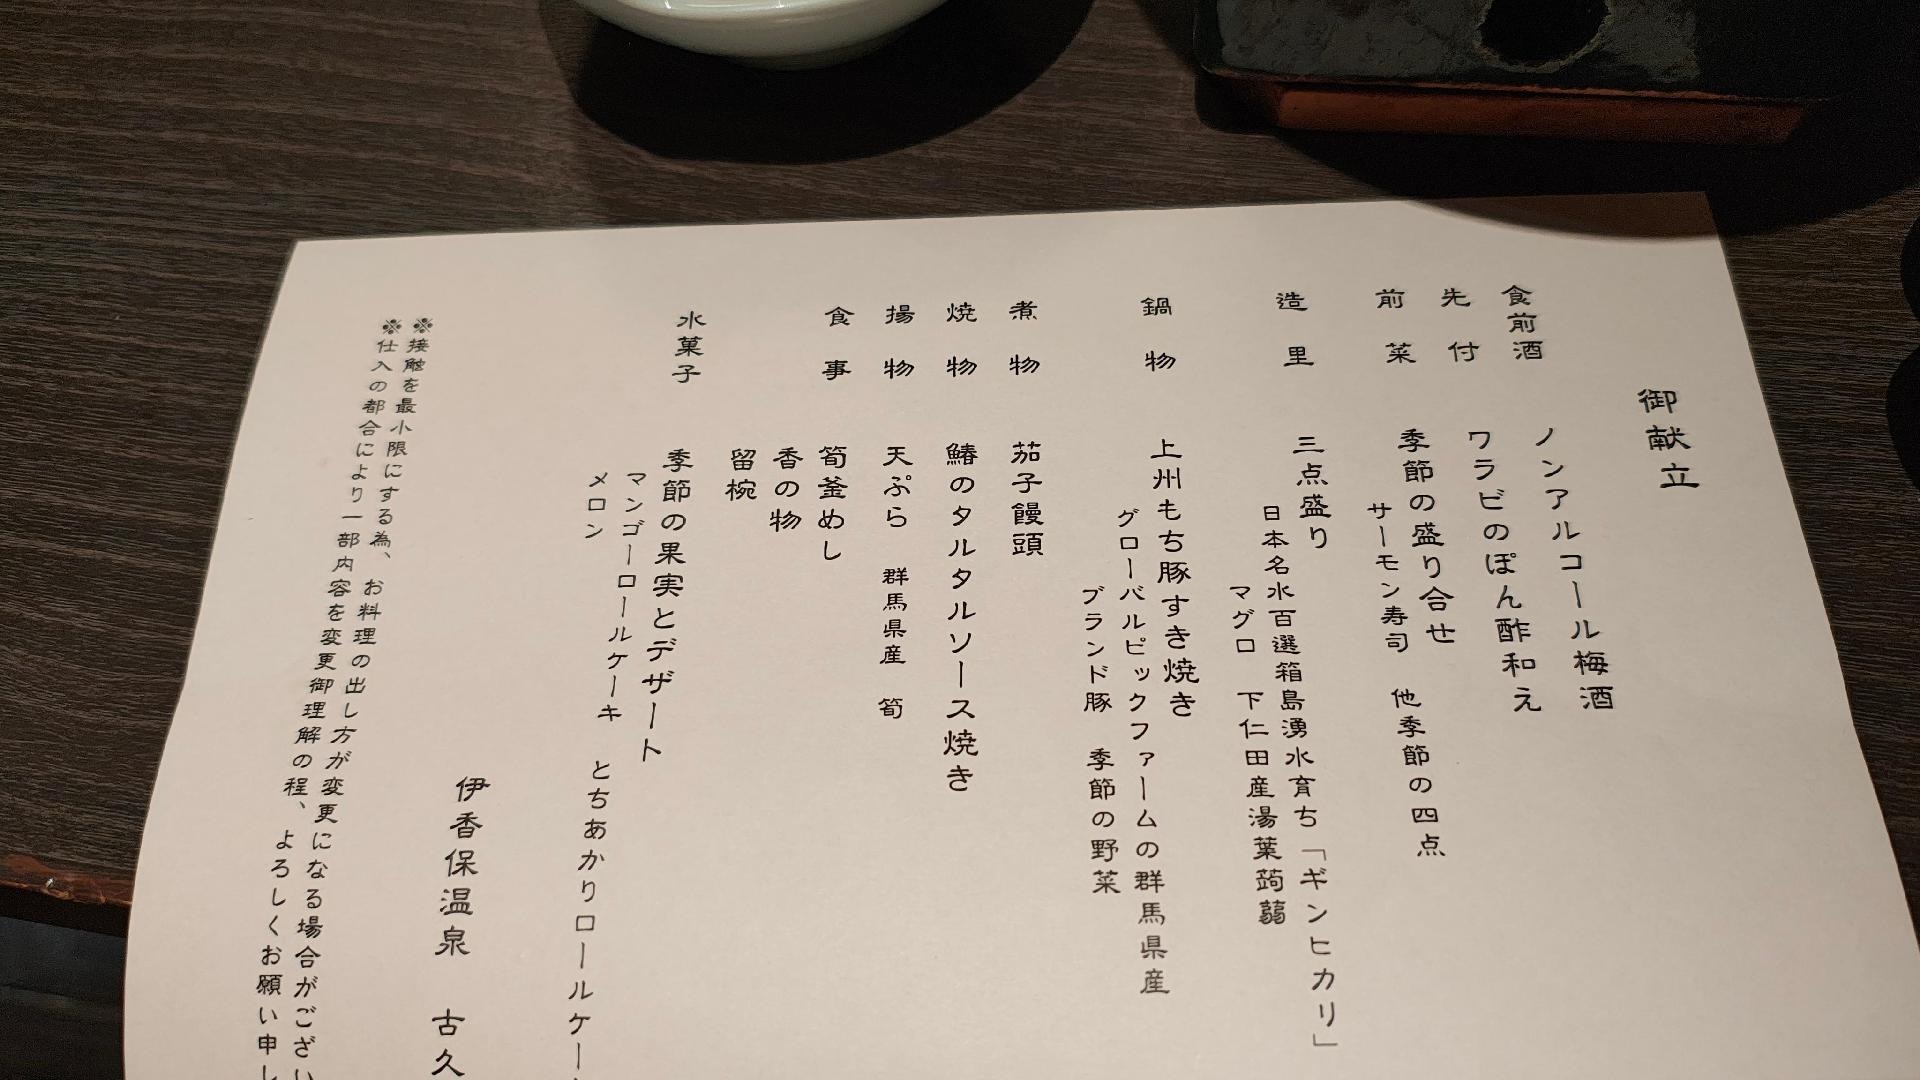 御献立
食前酒 ノンアルコール梅酒
先付 ワラビのぽん酢和え
前菜 季節の盛り合せ
サーモン寿司 他季節の四点
造里 三点盛り
日本名水百選箱島湧水育ち「ギンヒカリ」
マグロ 下仁田産湯葉蒟蒻
鍋物 上州もち豚すき焼き
グローバルピックファームの群馬県産
ブランド豚 季節の野菜
煮物 茄子饅頭
焼物 鰆のタルタルソース焼き
揚物 天ぷら 群馬県産 筍
食事 筍釜めし
香の物
留椀
水菓子 季節の果実とデザート
マンゴーロールケーキ とちあかりロールケー
メロン
伊香保温泉 古久
※接触を最小限にする為、お料理の出し方が変更になる場合がござい
※仕入の都合により一部内容を変更御理解の程、よろしくお願い申し